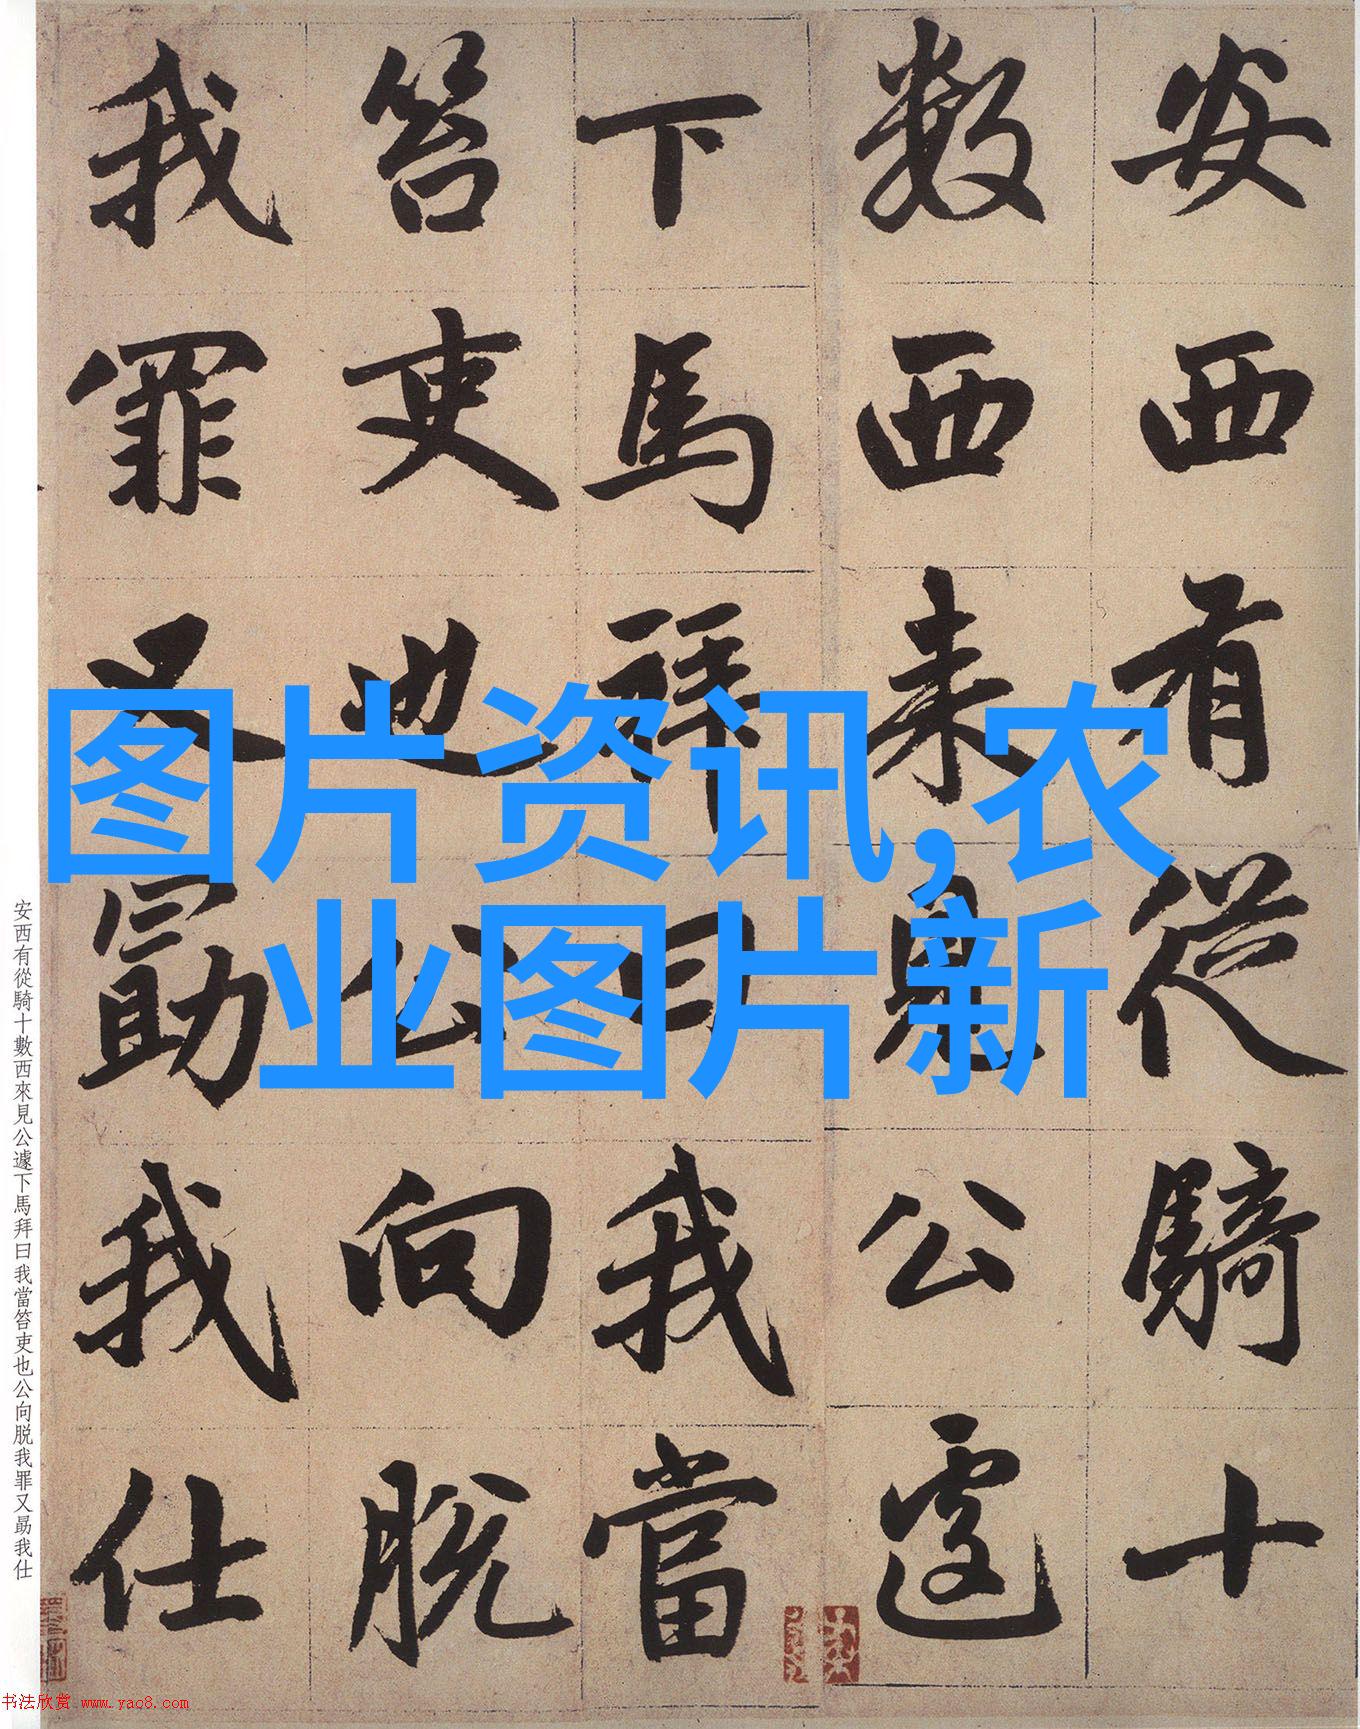 安西有從騎十
數西来見公遽
下馬拜曰我當
笞吏也公向脱
我罪又勗我仕
图片资讯,农
业图片新
安西有從騎十數西來見公遽下馬拜曰我當笞吏也公向脱我罪又勗我仕
书法欣赏 www.yac8.com